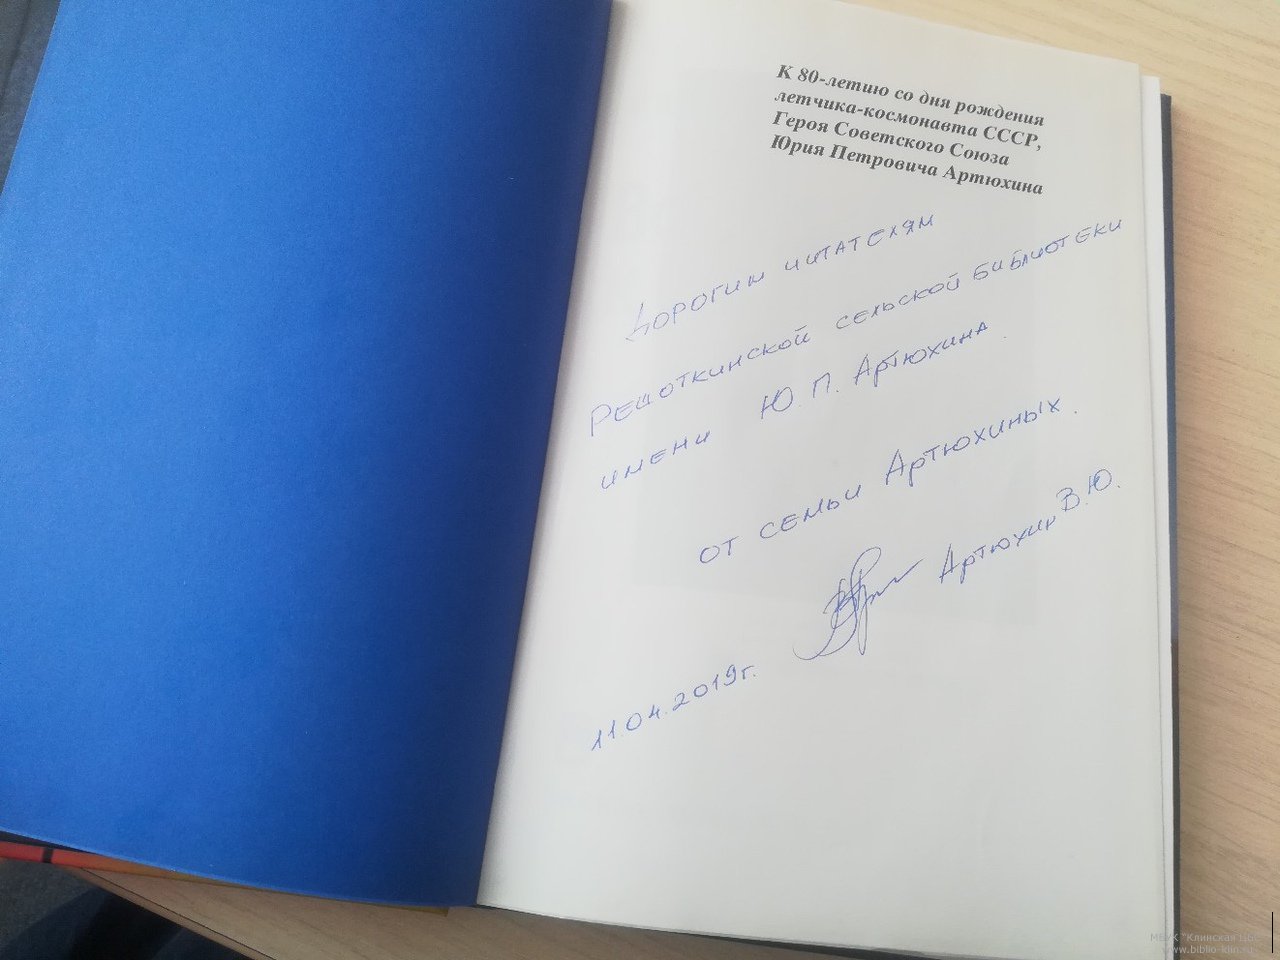 К 80-летию со дня рождения
летчика-космонавта СССР,
Героя Советского Союза
Юрия Петровича Артюхина
Дорогим читателям
Решоткинской сельской библиотеки
имени Ю. П. Артюхина.
от семьи Артюхиных.
Артюхин В.Ю.
11.04.2019г.
МБУК "Клинская ЦБС"
www.biblio-klin.ru